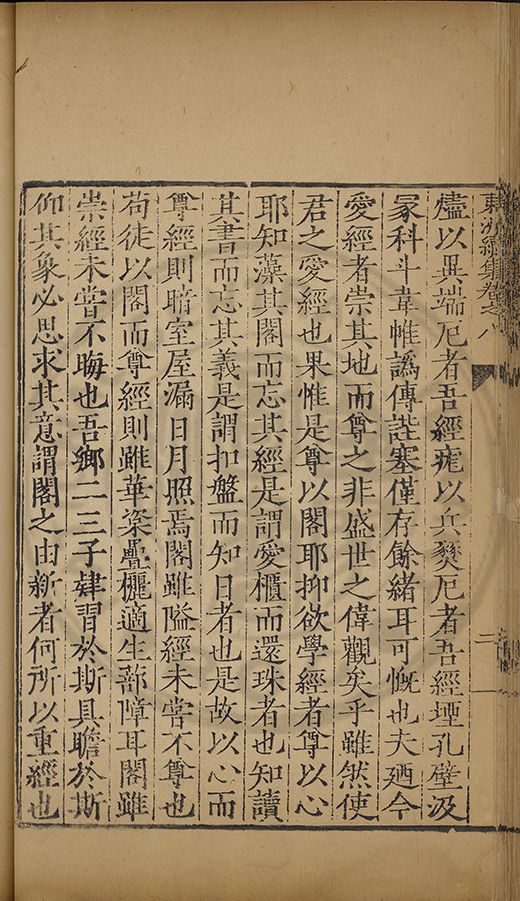 東續集卷之八
二
燼以異端厄者吾經以兵燹厄者吾經堙孔壁汲
冢科斗韋帷譌傳詿塞僅存餘緒耳可慨也夫廼今
愛經者崇其地而尊之非盛世之偉觀矣乎雖然使
君之愛經也果惟是尊以閣耶抑欲學經者尊以心
耶知藻其閣而忘其經是謂愛櫃而還珠者也知讀
其書而忘其義是謂扣盤而知日者也是故以心而
尊經則暗室屋漏日月照焉閣雖隘經未嘗不尊也
苟徒以閣而尊經則雖華梁疊櫳適生蔀障耳閣雖
崇經未嘗不晦也吾鄉二三子肄習於斯具瞻於斯
仰其象必思求其意謂閣之由新者何所以重經也